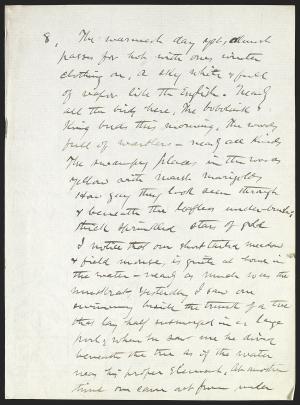 8. The warmest day yet, almost
passes for hot with ones winter
clothing on, a sky white & full
of vapor like the English. Nearly
all the birds here, The bobolink &
King birds this morning. The woods
full of warblers - nearly all kinds
The swampy places in the woods
yellow with marsh marigolds
How gay they look seen through
& beneath the leafless under-brush,
thick sprinkled stars of gold
I notice that our short tailed meadow
& field mouse, is quite at home in
the water - nearly as much so as the
muskrat, Yesterday I saw one
swimming beside the trunk of a tree
that lay half submerged in a large
pool; when he saw me he dived
beneath the tree as if the water
was his proper element. At another
time one came out from under